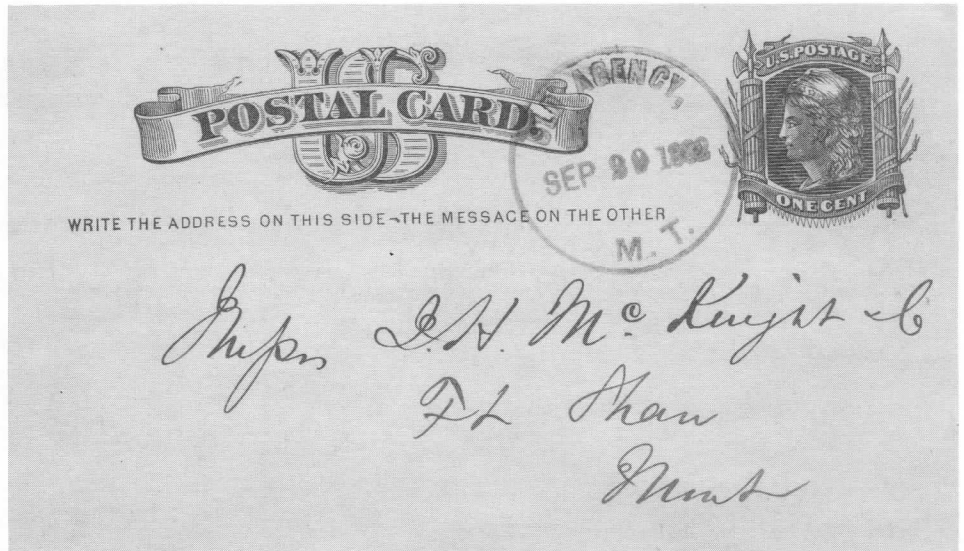 US
POSTAL CARD
U.S. POSTAGE
ONE CENT
AGENCY,
SEP 29 1882
M. T.
WRITE THE ADDRESS ON THIS SIDE - THE MESSAGE ON THE OTHER
Messrs J. H. McKnight & C
Ft Shaw
Mont